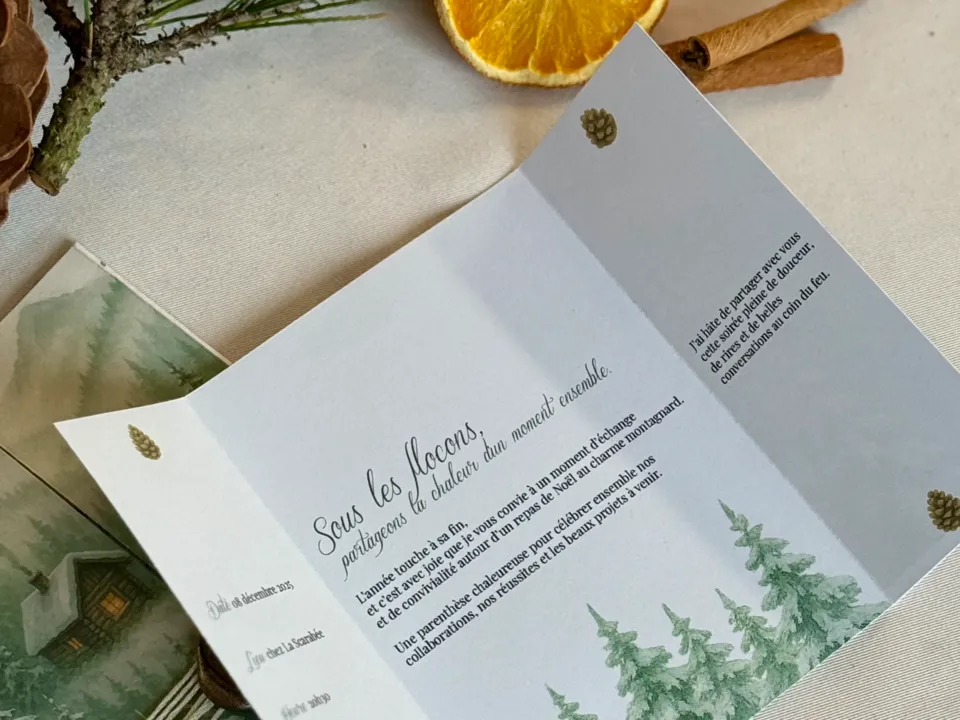 Date 08 décembre 2025
Lieu chez La Scarabée
Heure 20h30
Sous les flocons,
partageons la chaleur d'un moment ensemble.
L'année touche à sa fin,
et c'est avec joie que je vous convie à un moment d'échange
et de convivialité autour d'un repas de Noël au charme montagnard.
Une parenthèse chaleureuse pour célébrer ensemble nos
collaborations, nos réussites et les beaux projets à venir.
J'ai hâte de partager avec vous
cette soirée pleine de douceur,
de rires et de belles
conversations au coin du feu.